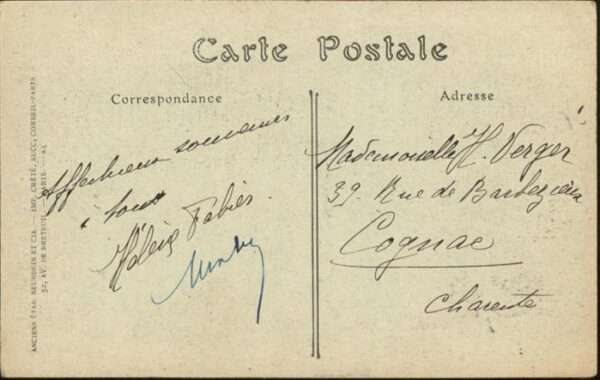 Carte Postale
Correspondance
Adresse
Affectueux souvenirs
à tous
Fabies
Mademoiselle H. Verger
39. Rue de Barbezieux
Cognac
Charente
ANCIENS ÉTAB. NEURDEIN ET CIE. — IMP. CRÉTÉ, SUCC., CORBEIL-PARIS
52, AV. DE BRETEUIL, PARIS.